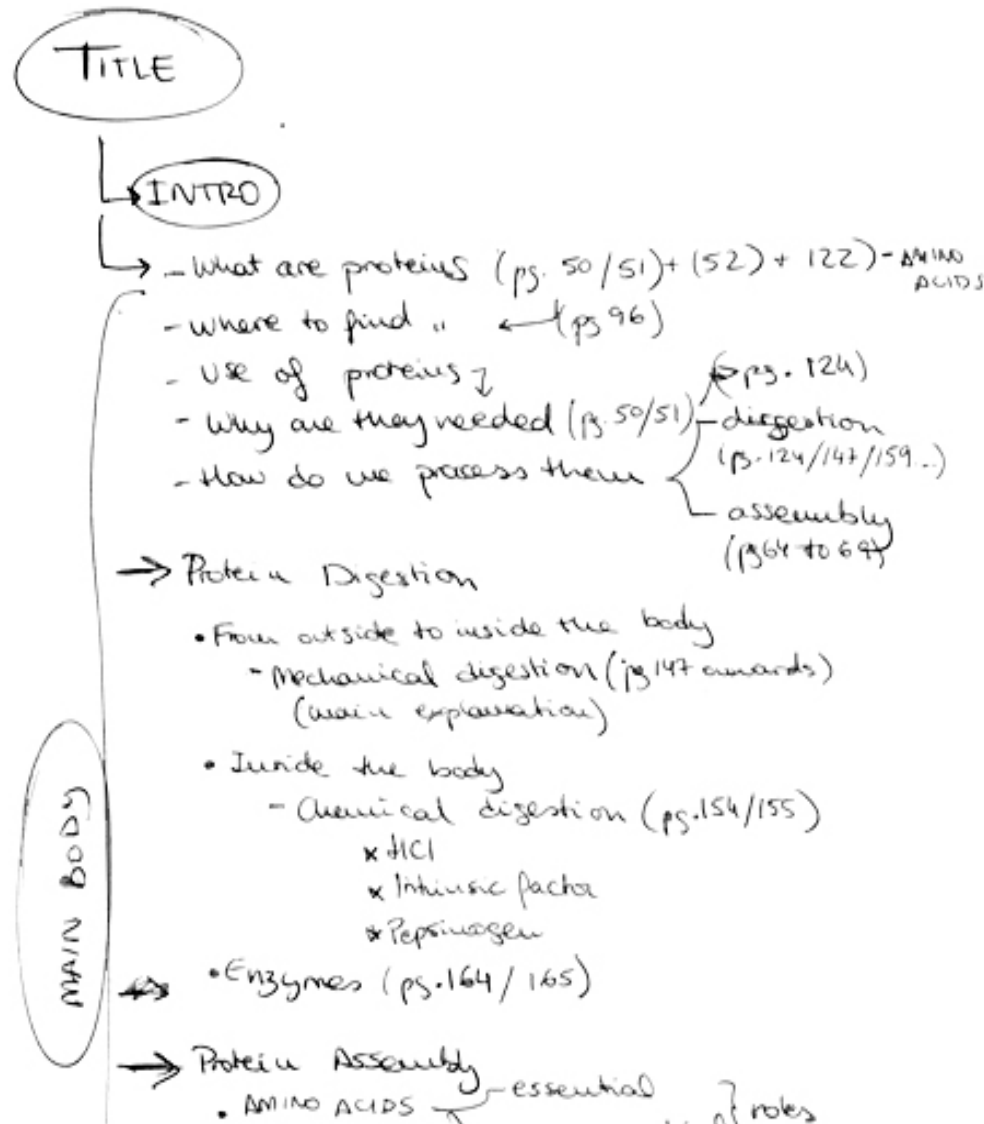 TITLE
INTRO
- What are proteins (pg. 50/51) + (52) + 122) - AMINO ACIDS
- Where to find " ← (pg 96)
- Use of proteins
- Why are they needed (pg. 50/51) (pg. 124)
- How do we process them
- diegestion
(pg. 124/147/159...)
- assembly
(pg 64 to 69)
→ Protein Digestion
• From outside to inside the body
- Mechanical digestion (pg 147 onwards)
(main explanation)
• Inside the body
- Chemical digestion (pg. 154/155)
* HCl
* Intrinsic factor
* Pepsinogen
MAIN BODY
• Enzymes (pg. 164/165)
→ Protein Assembly
• AMINO ACIDS - essential } roles